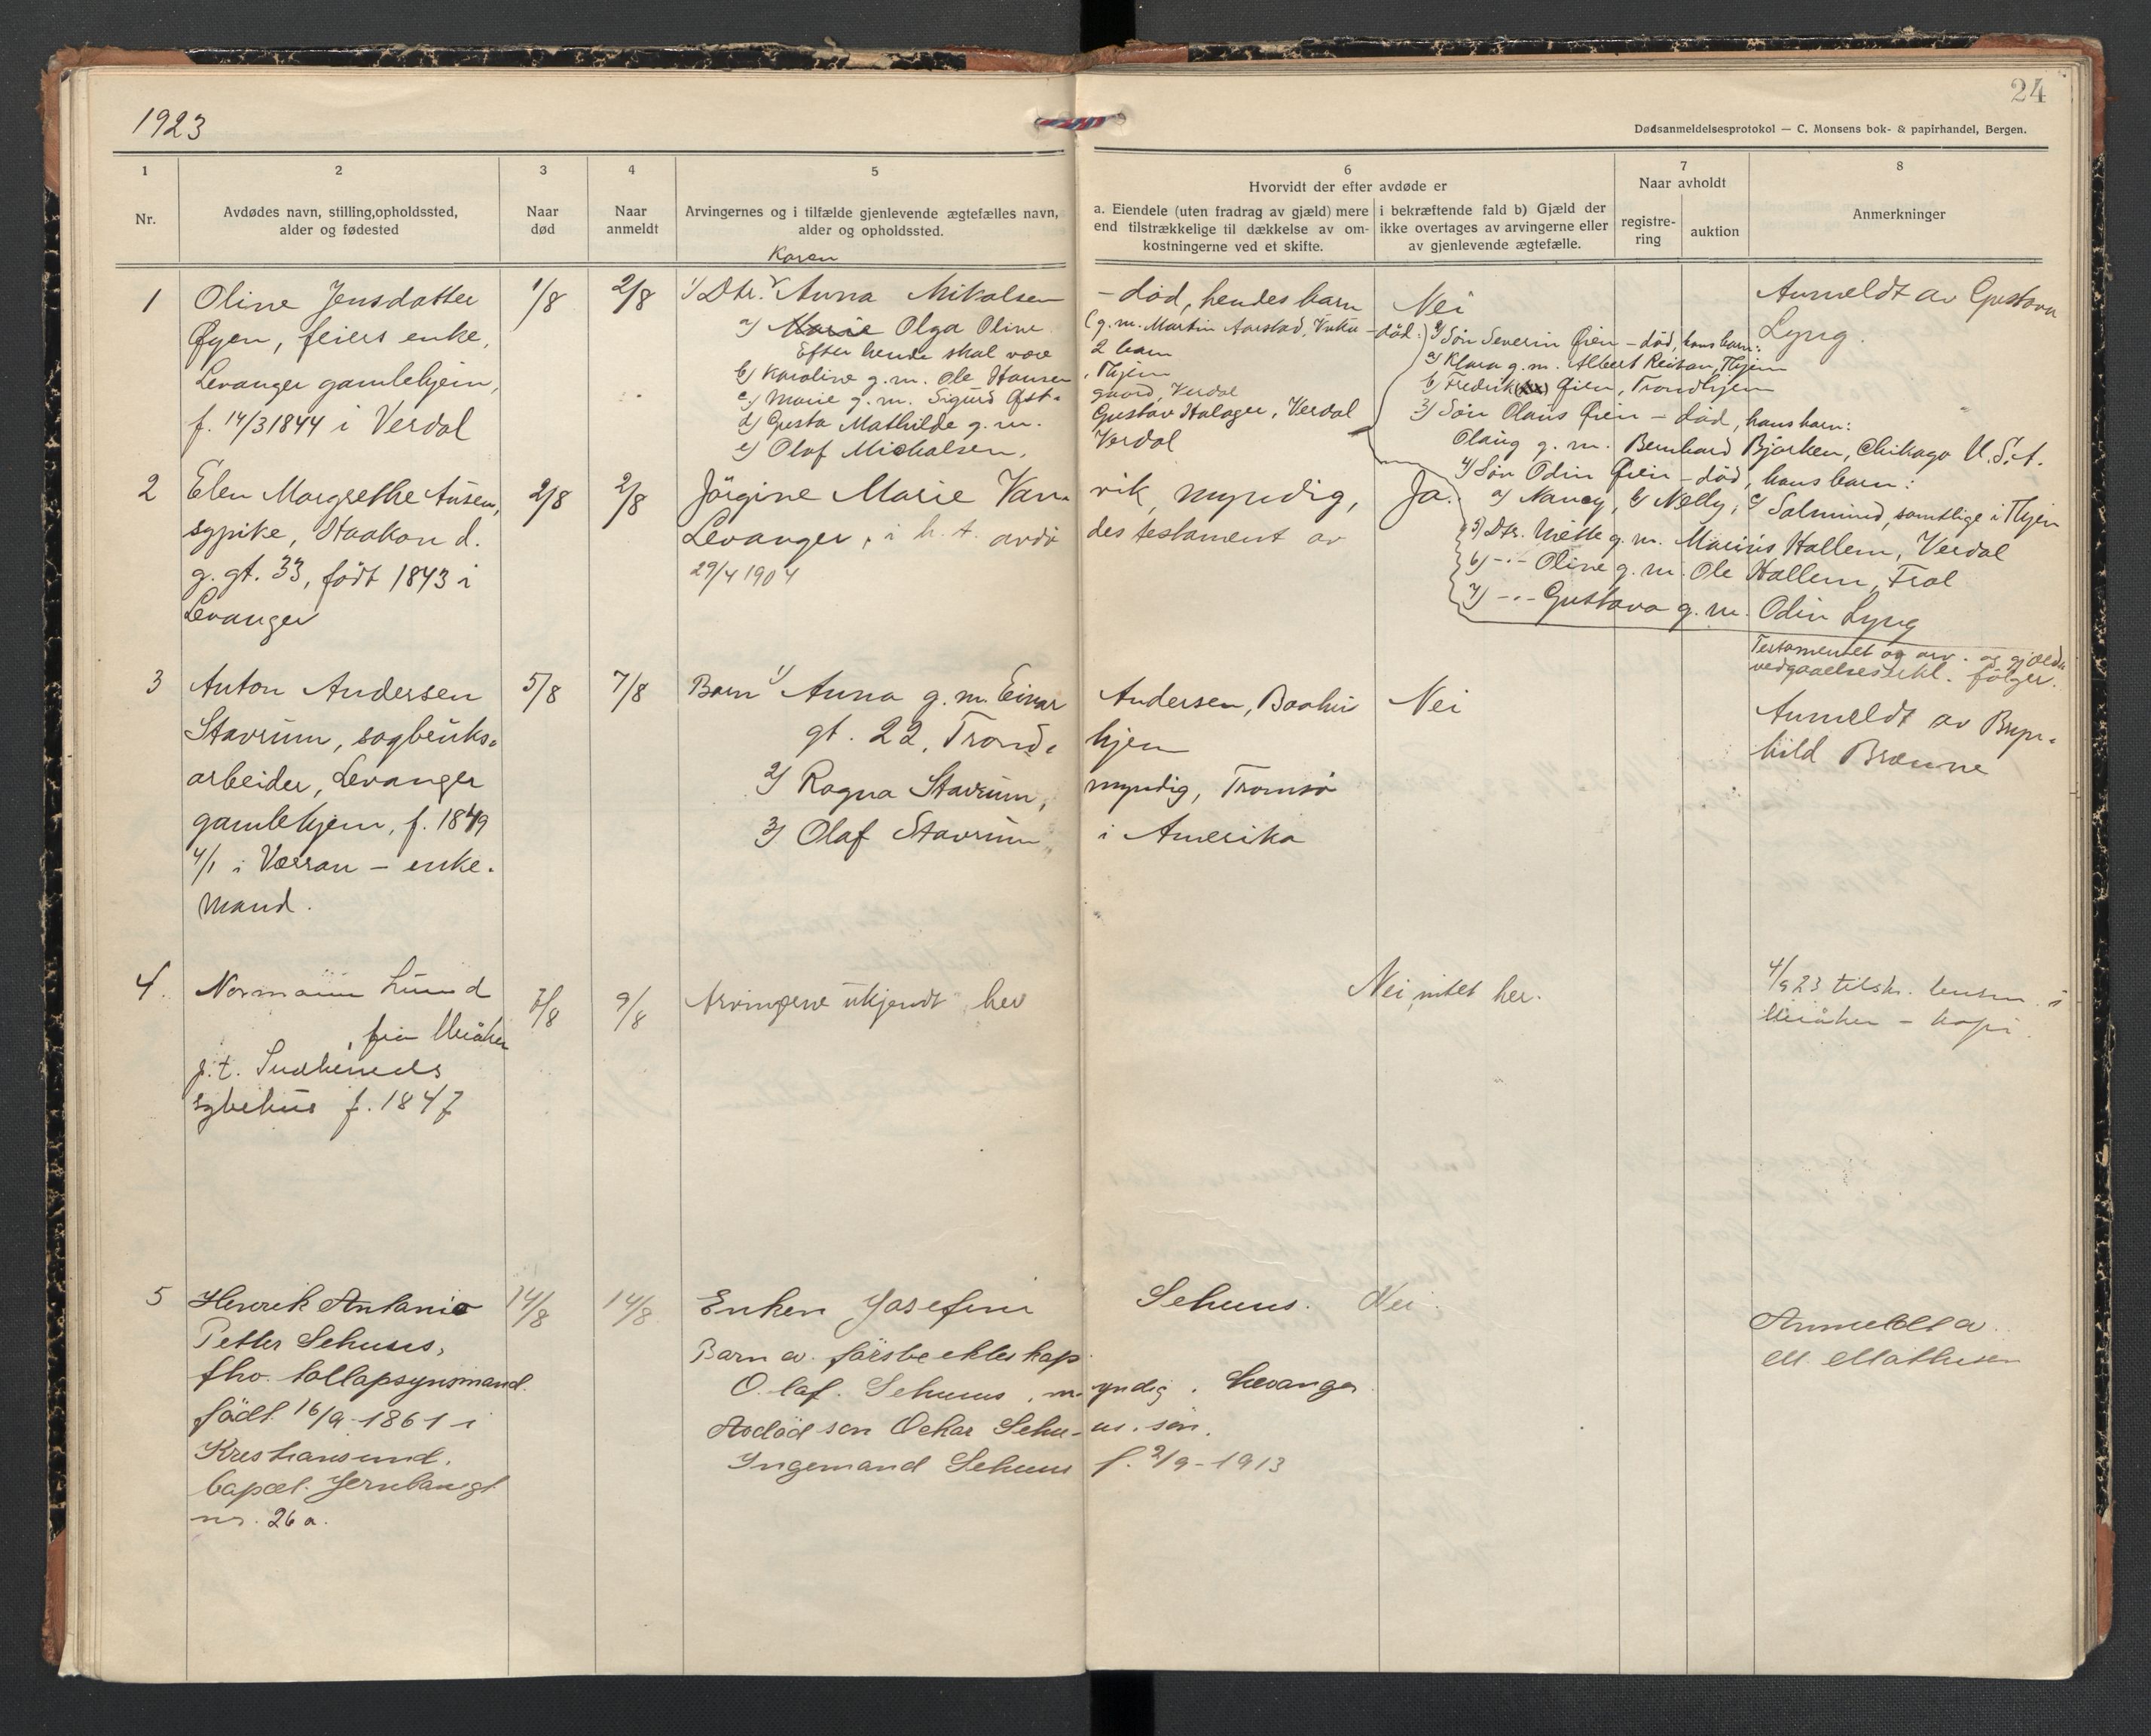 24
1923
Dødsanmeldelsesprotokol — C. Monsens bok- & papirhandel, Bergen.
1
2
3
4
5
6
7
8
Nr.
Avdødes navn, stilling, opholdssted,
alder og fødested
Naar
død
Naar
anmeldt
Arvingernes og i tilfælde gjenlevende ægtefælles navn,
alder og opholdssted.
Hvorvidt der efter avdøde er
a. Eiendele (uten fradrag av gjæld) mere
end tilstrækkelige til dækkelse av om-
kostningerne ved et skifte.
i bekræftende fald b) Gjæld der
ikke overtages av arvingerne eller
av gjenlevende ægtefælle.
Naar avholdt
registre-
ring
auktion
Anmerkninger
1
Oline Jensdatter
Øyen, feiers enke,
Levanger gamlehjem,
f. 14/3 1844 i Verdal
1/8
2/8
Karen
1) Dtr. Anna Mikalsen - död, hendes barn
a) Marie Olga Oline (g. m. Martin Aarstad, Vuku - död.)
Efter hende skal være 2 barn
b) Karoline g. m. Ole Hansen, Thjem
c) Marie g. m. Sigurd Øst- gaard, Verdal
d) Gusta Mathilde g. m. Gustav Halager, Verdal
e) Olaf Michalsen, Verdal
Nei
2) Sön Severin Øien - död, hans barn:
a) Klara g. m. Albert Reitan, Thjem
b) Fredrik Øien, Trondhjem
3) Sön Olaus Øien - död, hans barn:
Olaug g. m. Bernhard Bjarken, Chikago U.S.A.
4) Sön Odin Øien - död, hans barn:
a) Nancy, b) Nelly, c) Salmund, samtlige i Thjem
5) Dtr. Mette g. m. Marius Hallem, Verdal
6) -"- Oline g. m. Ole Hallem, Frol
7) -"- Gustava g. m. Odin Lyng
Anmeldt av Gustava
Lyng.
2
Elen Margrethe Ansem,
sypike, Haakon d.
g. gt. 33, födt 1843 i
Levanger
2/8
2/8
Jörgine Marie Van- vik, myndig,
Levanger, i h. t. avdö- des testament av
29/4 1904
Ja.
Testamentet og arv- og gjælds
vedgaaelseserkl. følger.
3
Anton Andersen
Stavrum, sagbruks-
arbeider, Levanger
gamlehjem, f. 1849
4/1 i Værran - enke-
mand.
5/8
7/8
Barn 1) Anna g. m. Einar Andersen,
gt. 22, Trond- hjem
2) Ragna Stavrum, myndig, Tromsö
3) Olaf Stavrum i Amerika
Nei
Anmeldt av Bryn-
hild Brænne
4.
Normann Lund
, fra Meråker
p.t. Innherreds
sykehus f. 1847
7/8
9/8
Arvingerne ukjendt her
Nei, intet her.
4/9 23 tilskr. lensm. i
Meråker - kopi.
5
Henrik Antonio
Petter Schuus,
fhv. tollopsynsmand.
födt 16/9-1861 i
Kristiansund.
bopæl. Jernbanegt
nr. 26 a.
14/8
14/8
Enken Josefine Schuus.
Barn av förste ekteskap
Olaf Schuus, myndig, Levanger
Avdöd sön Oskar Schu- us. sön.
Ingemand Schuus f. 2/9-1913
Nei.
Anmeldt a.
M. Mathisen